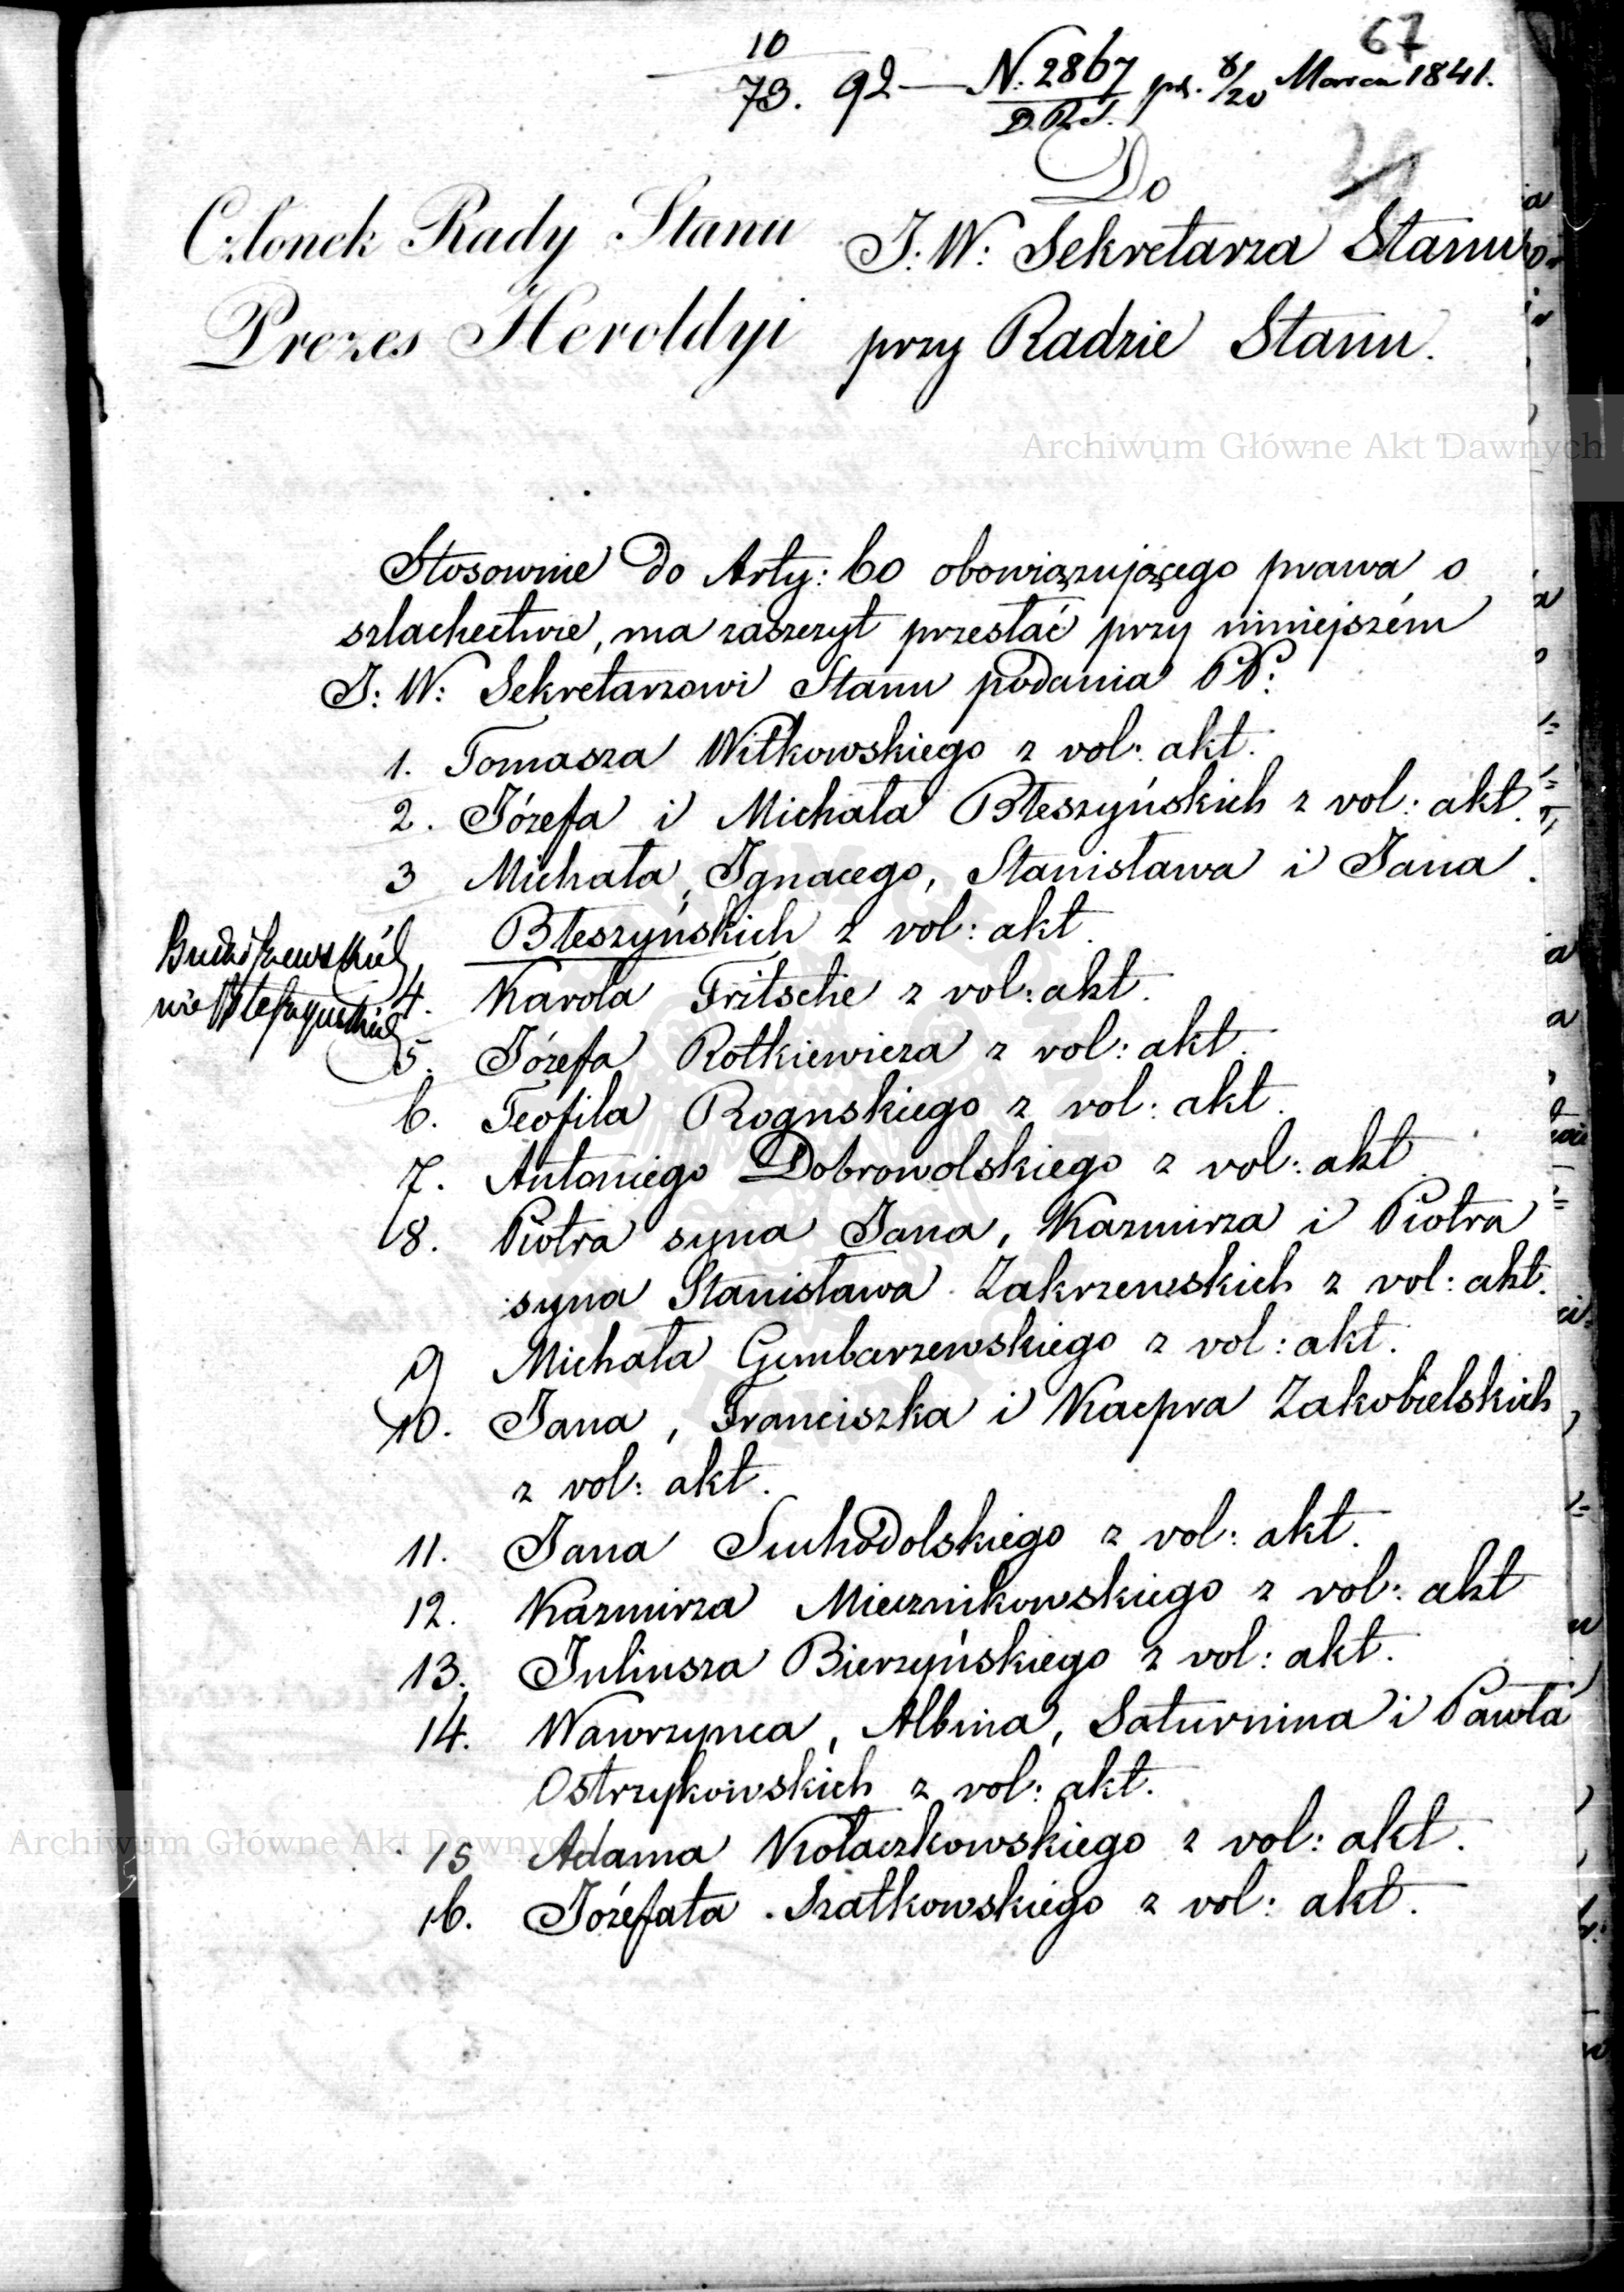 67
10
73. 92 — N. 2867 pr. 8/20 Marca 1841.
D.R.S.
Do
Członek Rady Stanu
Prezes Heroldyi
J: W: Sekretarza Stanu
przy Radzie Stanu.
Archiwum Główne Akt Dawnych
Stosownie do Arty: 60 obowiązującego prawa o
szlachectwie, ma zaszczyt przesłać przy niniejszém
J: W: Sekretarzowi Stanu podania PP:
1. Tomasza Witkowskiego z vol: akt.
2. Józefa i Michała Błeszyńskich z vol: akt.
3 Michała, Ignacego, Stanisława i Jana
Błeszyńskich z vol: akt.
nie Błeszyńskich
4. Karola Fritsche z vol: akt.
5. Józefa Rotkiewicza z vol: akt.
6. Teofila Roguskiego z vol: akt.
7. Antoniego Dobrowolskiego z vol: akt
8. Piotra syna Jana, Kazmirza i Piotra
syna Stanisława Zakrzewskich z vol: akt.
9 Michała Gumbarzewskiego z vol: akt.
10. Jana, Franciszka i Kacpra Zakobielskich
z vol: akt.
11. Jana Suchodolskiego z vol: akt.
12. Kazmirza Miecznikowskiego z vol: akt
13. Juliusza Bierzyńskiego z vol: akt.
14. Wawrzynca, Albina, Saturnina i Pawła
Ostrzykowskich z vol: akt.
15 Adama Kołaczkowskiego z vol: akt.
16. Józefata Szatkowskiego z vol: akt.
Archiwum Główne Akt Dawnych